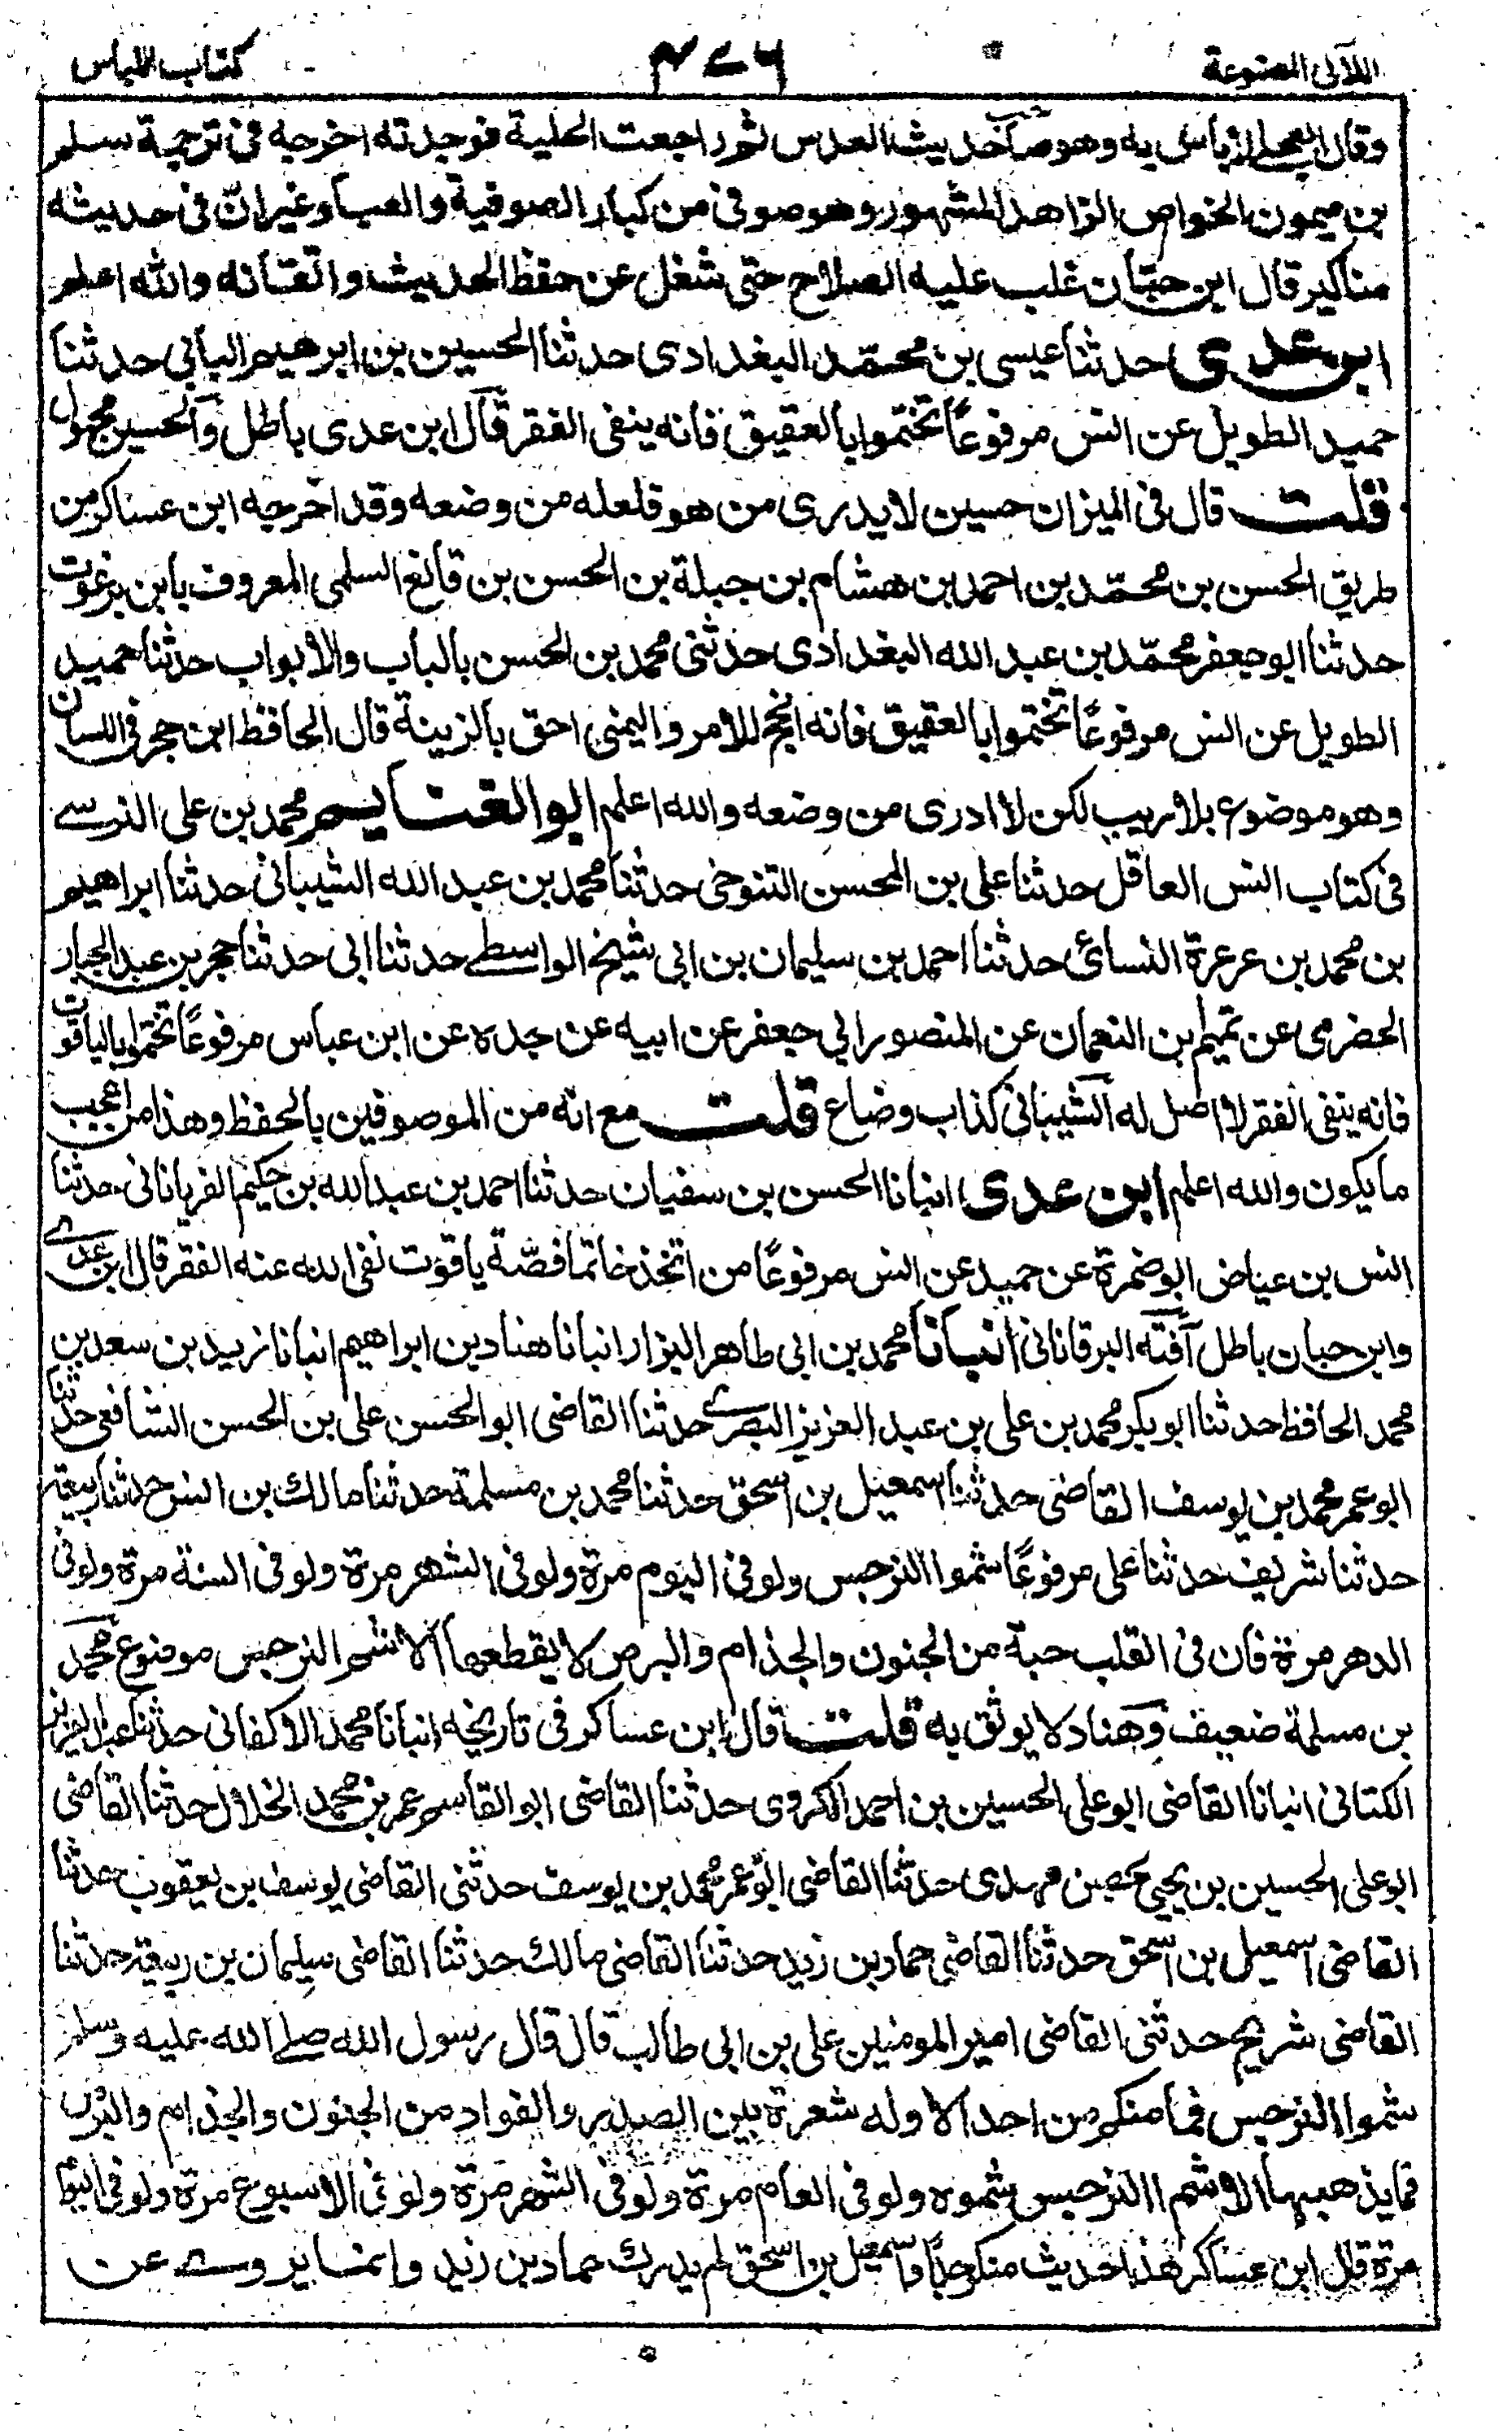 اللآلى المصنوعة ٤٧٦ كتاب اللباس
وقال العجلى لاباس به وهو صاحب حديث العدس ثم راجعت الحلية فوجدته اخرجه فى ترجمة سلم
بن ميمون الخواص الزاهد المشهور وهو صوفى من كبار الصوفية والعباد غير ان فى حديثه
مناكير قال ابن حبان غلب عليه الصلاح حتى شغل عن حفظ الحديث واتقانه والله اعلم
ابن عدى حدثنا عيسى بن محمد البغدادى حدثنا الحسين بن ابرهيم البابى حدثنا
حميد الطويل عن انس مرفوعاً تختموا بالعقيق فانه ينفى الفقر قال ابن عدى باطل والحسين مجهول
قلت قال فى الميزان حسين لا يدرى من هو فلعله من وضعه وقد اخرجه ابن عساكر من
طريق الحسن بن محمد بن احمد بن هشام بن جبلة بن الحسن بن قانع السلمى المعروف بابن برغوث
حدثنا ابو جعفر محمد بن عبد الله البغدادى حدثنى محمد بن الحسن بالباب والابواب حدثنا حميد
الطويل عن انس مرفوعاً تختموا بالعقيق فانه انجح للامر واليمنى احق بالزينة قال الحافظ ابن حجر فى اللسان
وهو موضوع بلا ريب لكن لا ادرى من وضعه والله اعلم ابو الغنايم محمد بن على النرسے
فى كتاب انس العاقل حدثنا على بن المحسن التنوخى حدثنا محمد بن عبد الله الشيبانى حدثنا ابراهيم
بن محمد بن عرعرة النسائى حدثنا احمد بن سليمان بن ابى شيخ الواسطے حدثنا ابى حدثنا حجر بن عبد الجبار
الحضرمى عن تميم بن النعمان عن المنصور ابى جعفر عن ابيه عن جده عن ابن عباس مرفوعاً تختموا بالياقوت
فانه ينفى الفقر لا اصل له الشيبانى كذاب وضاع قلت مع انه من الموصوفين بالحفظ وهذا من اعجب
ما يكون والله اعلم ابن عدى انبانا الحسن بن سفيان حدثنا احمد بن عبد الله بن حكيم الفريانانى حدثنا
انس بن عياض ابو ضمرة عن حميد عن انس مرفوعاً من اتخذ خاتما فصّه ياقوت نفى الله عنه الفقر قال ابن عدے
وابن حبان باطل آفته البرقانانى انبانا محمد بن ابى طاهر البزار انبانا هناد بن ابراهيم انبانا زيد بن سعد بن
محمد الحافظ حدثنا ابو بكر محمد بن على بن عبد العزيز البصرے حدثنا القاضى ابو الحسن على بن الحسن الشافعى حدثنا
ابو عمر محمد بن يوسف القاضى حدثنا اسمعيل بن اسحق حدثنا محمد بن مسلمة حدثنا مالك بن انس حدثنا ربيعة
حدثنا شريف حدثنا على مرفوعاً شموا النرجس ولو فى اليوم مرة ولو فى الشهر مرة ولو فى السنة مرة ولو فى
الدهر مرة فان فى القلب حبة من الجنون والجذام والبرص لا يقطعها الا شم النرجس موضوع محمد
بن مسلمة ضعيف وهناد لا يوثق به قلت قال ابن عساكر فى تاريخه انبانا محمد الاكفانى حدثنا عبد العزيز
الكتانى انبانا القاضى ابو على الحسين بن احمد الكروى حدثنا القاضى ابو القاسم عمر بن محمد الخلال حدثنا القاضى
ابو على الحسين بن يحيى مهدى حدثنا القاضى ابو عمر محمد بن يوسف حدثنى القاضى يوسف بن يعقوب حدثنا
القاضى اسمعيل بن اسحق حدثنا القاضى حماد بن زيد حدثنا القاضى مالك حدثنا القاضى سليمان بن ربيعة حدثنا
القاضى شريح حدثنى القاضى امير المومنين على بن ابى طالب قال قال رسول الله صلے الله عليه وسلم
شموا النرجس فما منكم من احد الا وله شعرة بين الصدر والفواد من الجنون والجذام والبرص
فما يذهبها الا شم النرجس شموه ولو فى العام مرة ولو فى الشهر مرة ولو فى الاسبوع مرة ولو فى اليوم
مرة قال ابن عساكر هذا حديث منكر جدًا واسمعيل بن اسحق لم يدرك حماد بن زيد وانما يروے عن